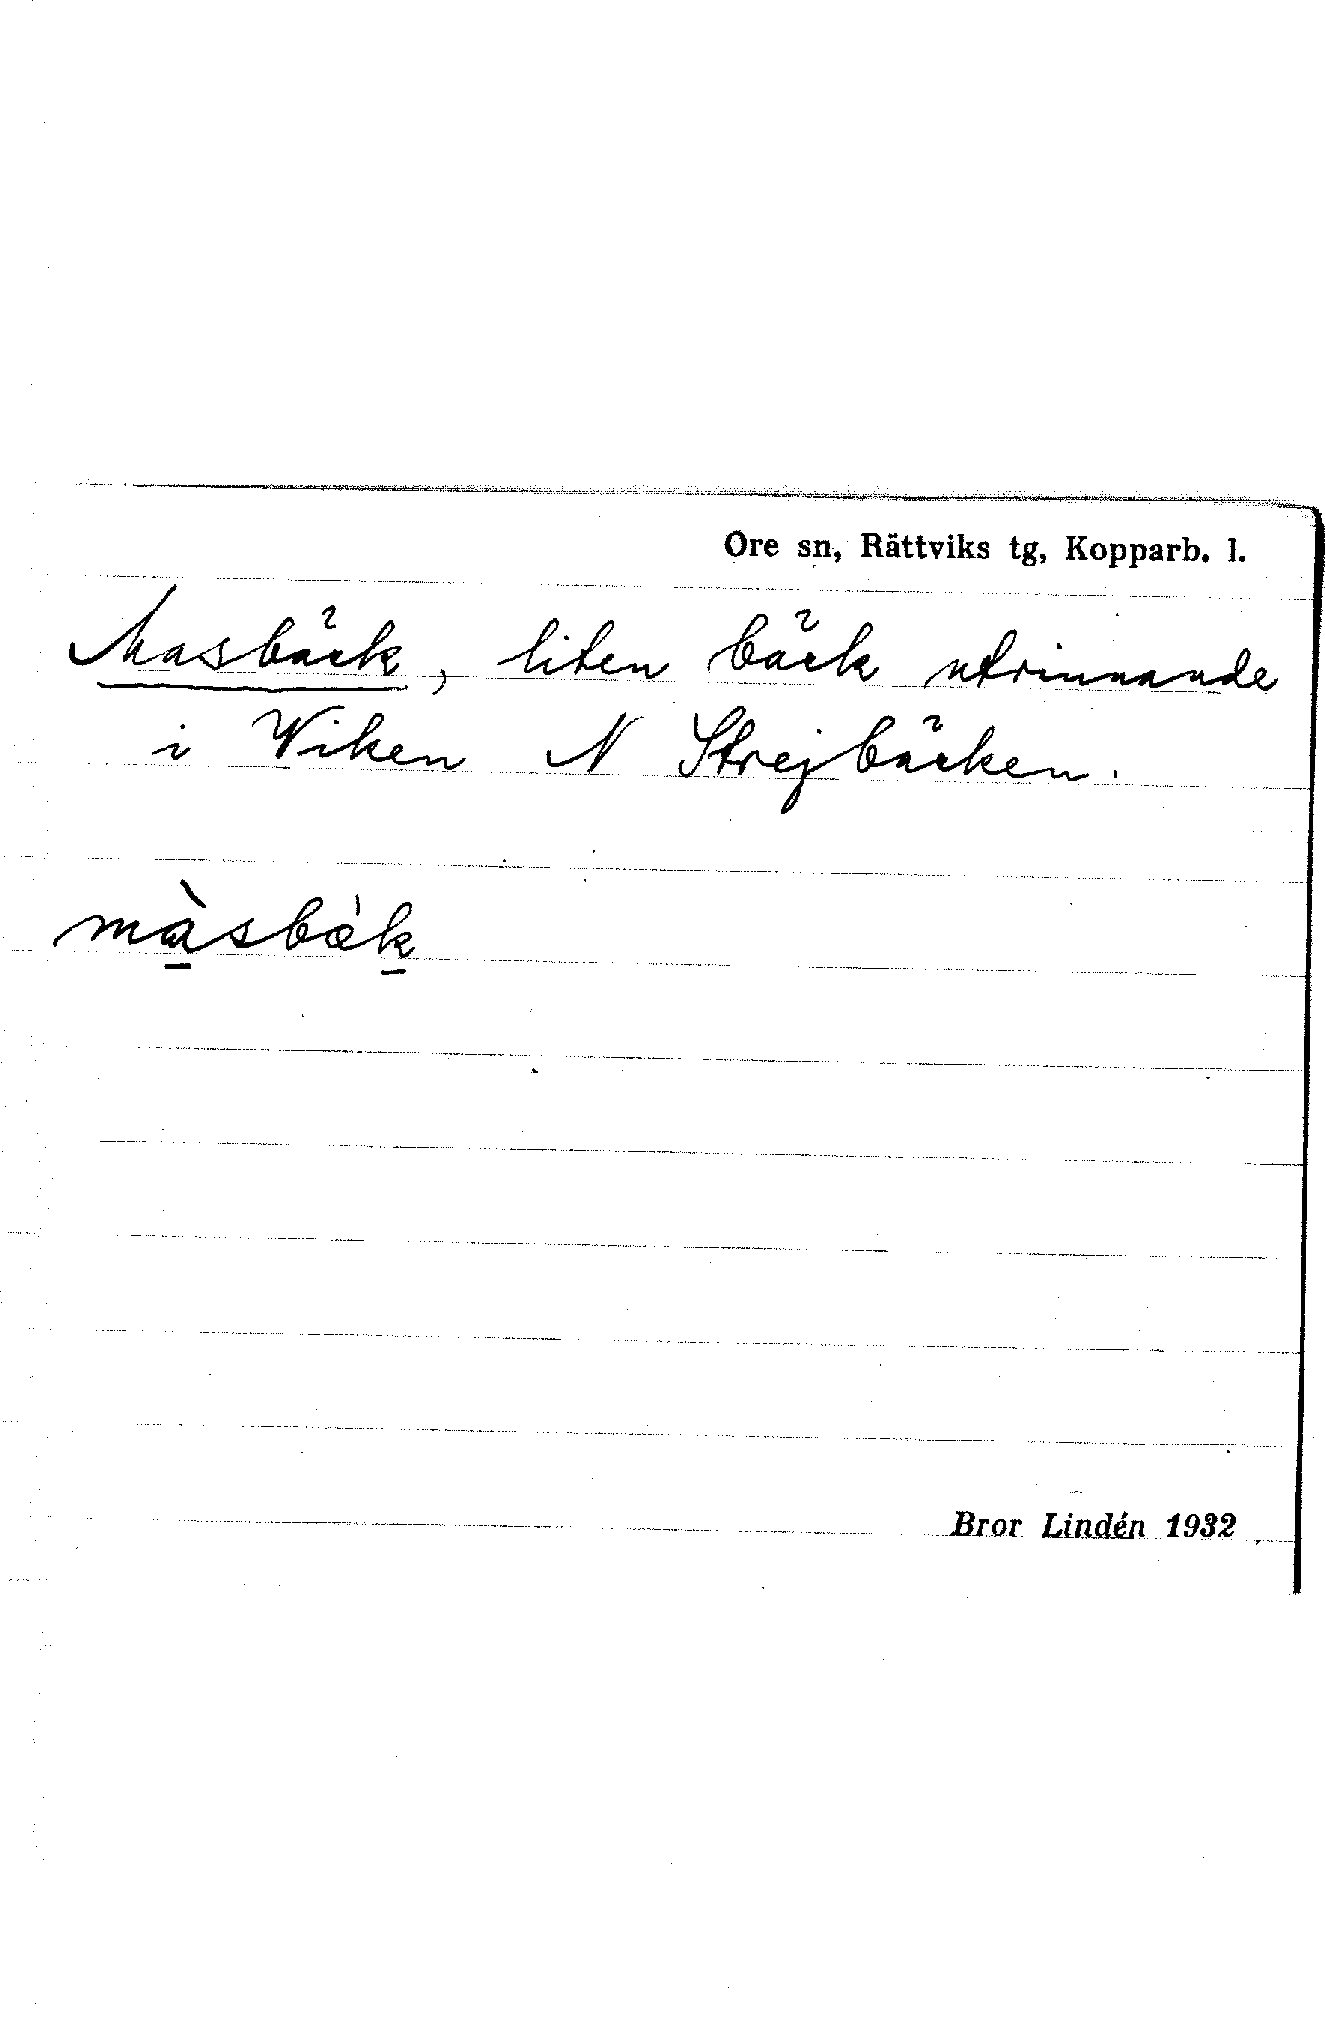 Ore sn, Rättviks tg, Kopparb. l.
Masbäck, liten bäck utrinnande
i Viken N Strejbäcken.
màsbæ̀k
Bror Lindén 1932